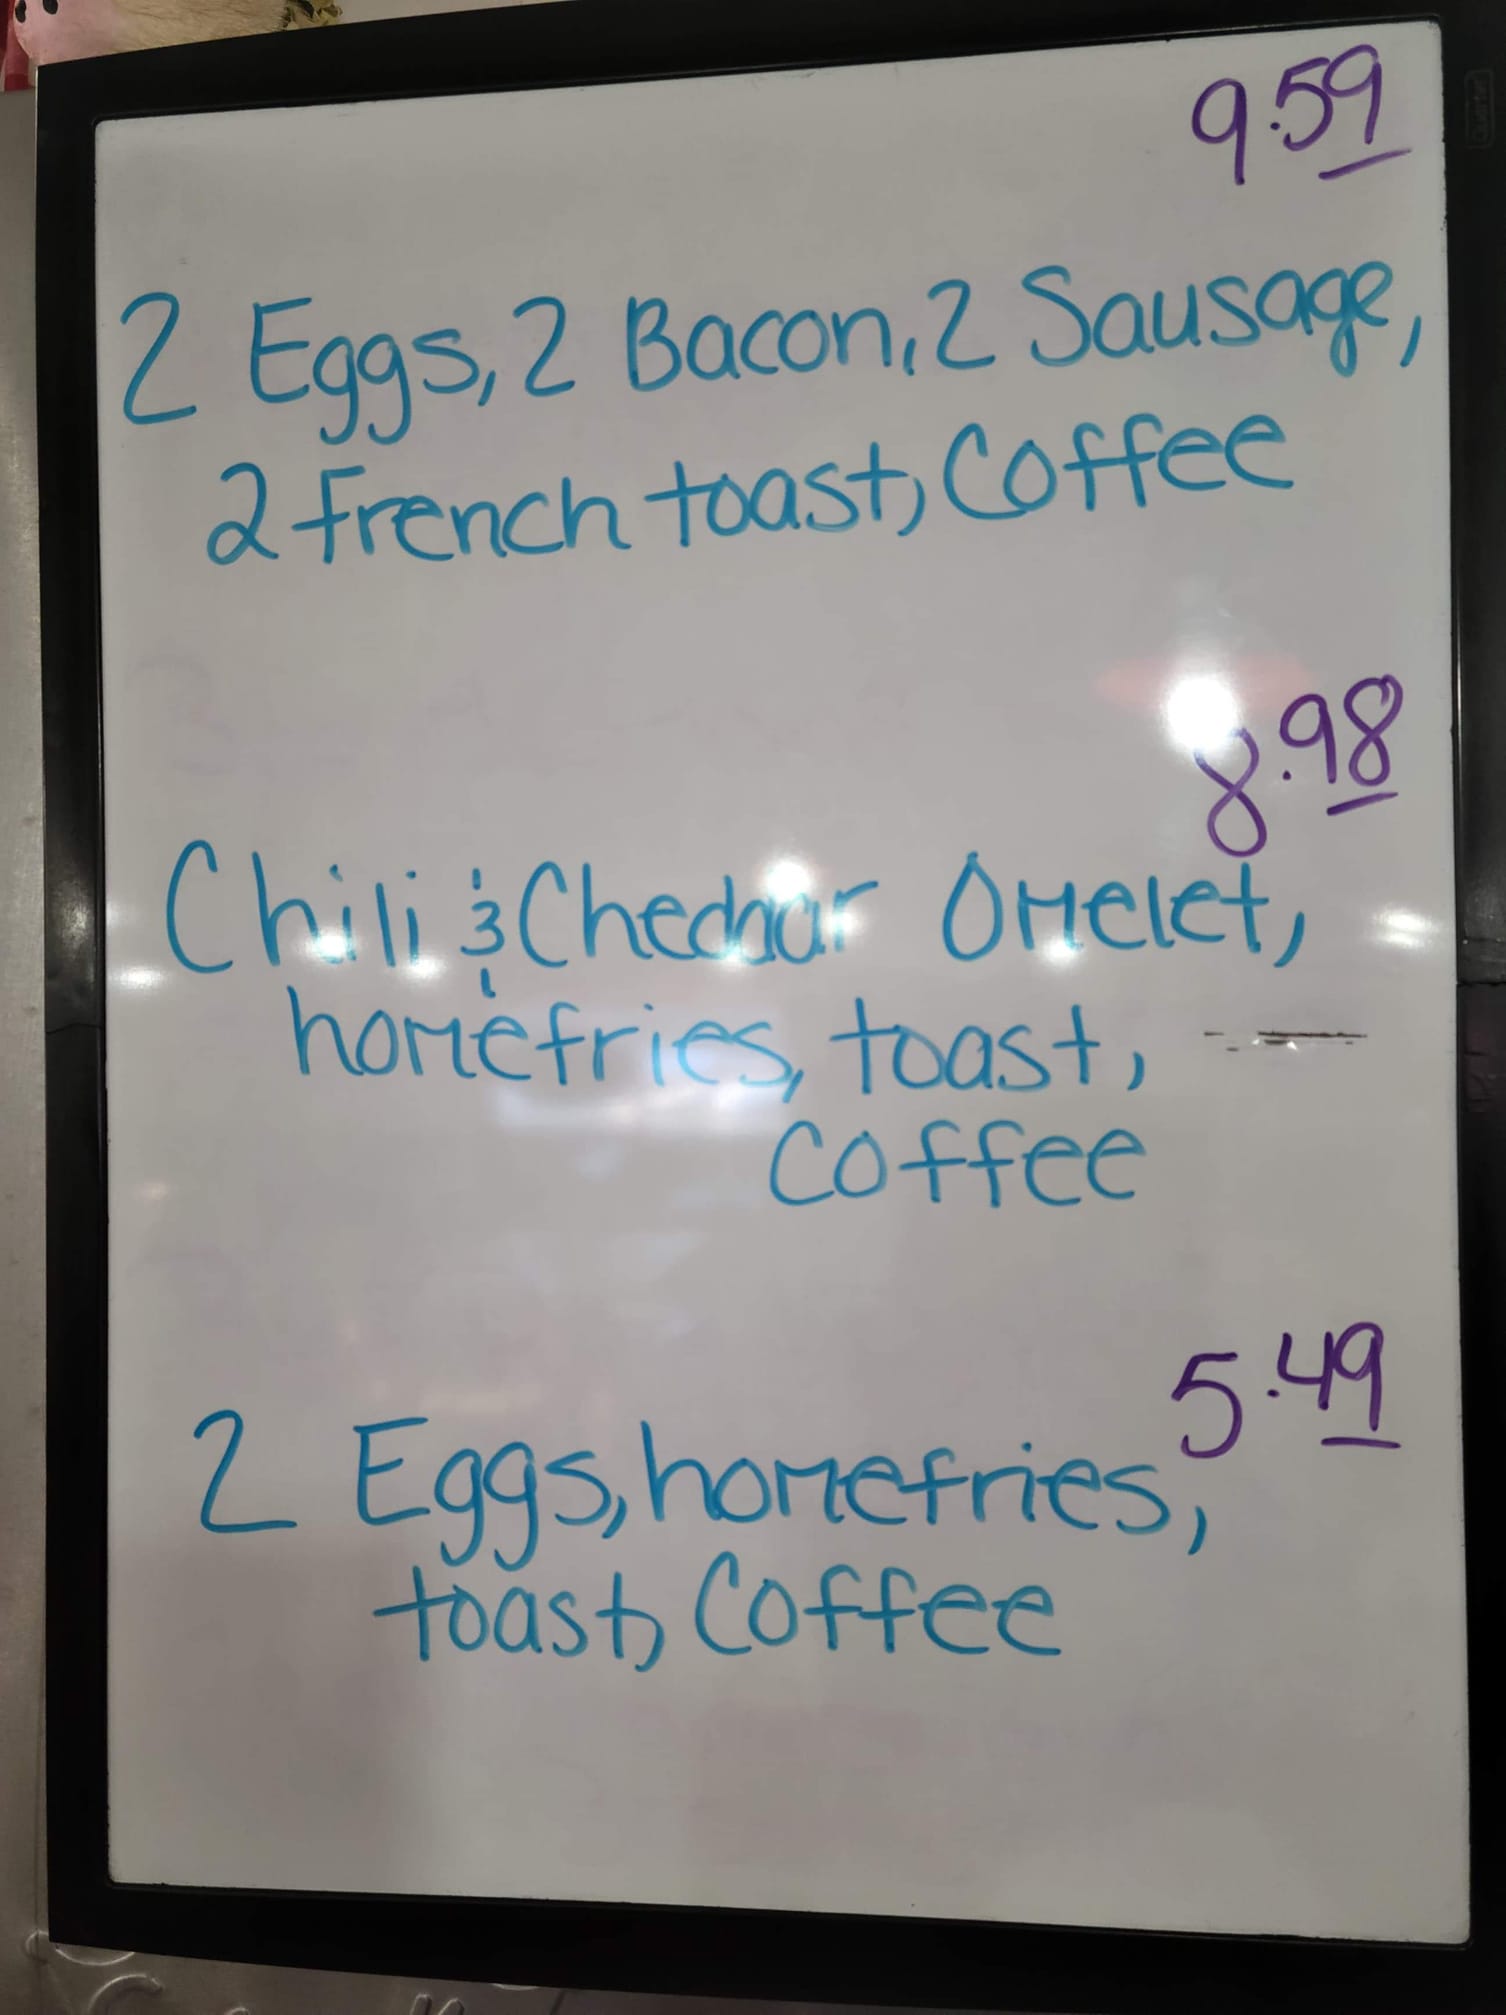 9.59
2 Eggs, 2 Bacon, 2 Sausage,
2 French toast, Coffee
8.98
Chili & Cheddar Omelet,
homefries, toast,
Coffee
5.49
2 Eggs, homefries,
toast, Coffee
Quartet